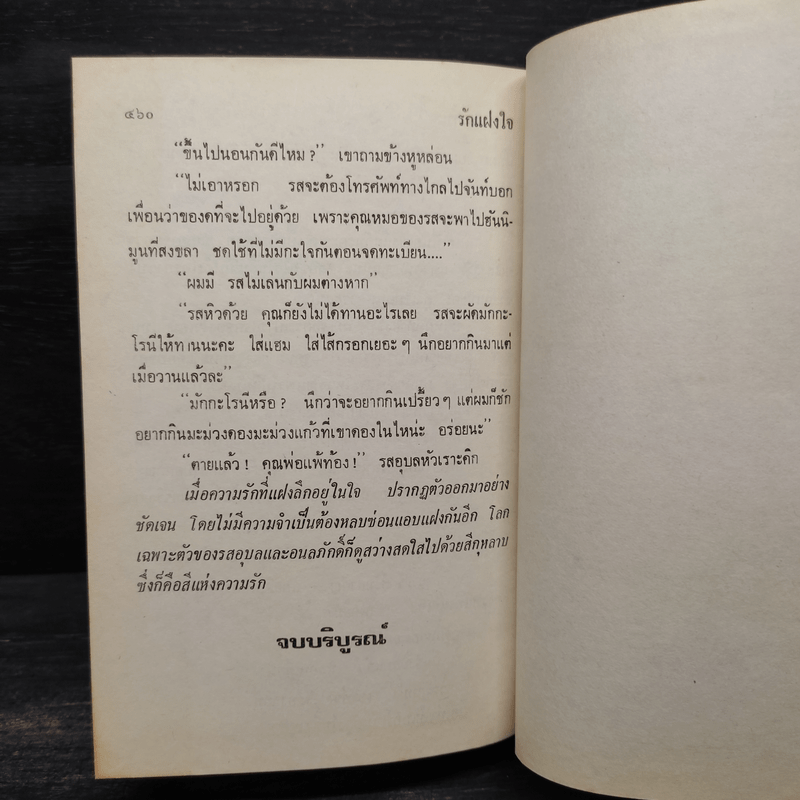 ๔๖๐ รักแฝงใจ
“ขึ้นไปนอนกันดีไหม ?” เขาถามข้างหูหล่อน
“ไม่เอาหรอก รสจะต้องโทรศัพท์ทางไกลไปจันท์บอก
เพื่อนว่าของดที่จะไปอยู่ด้วย เพราะคุณหมอของรสจะพาไปฮันนิ-
มูนที่สงขลา ชดใช้ที่ไม่มีกะใจกันตอนจดทะเบียน....”
“ผมมี รสไม่เล่นกับผมต่างหาก”
“รสหิวด้วย คุณก็ยังไม่ได้ทานอะไรเลย รสจะผัดมักกะ-
โรนีให้ทานนะคะ ใส่แฮม ใส่ไส้กรอกเยอะ ๆ นึกอยากกินมาแต่
เมื่อวานแล้วละ”
“มักกะโรนีหรือ ? นึกว่าจะอยากกินเปรี้ยว ๆ แต่ผมก็ชัก
อยากกินมะม่วงดองมะม่วงแก้วที่เขาดองในไหน่ะ อร่อยนะ”
“ตายแล้ว ! คุณพ่อแพ้ท้อง !” รสอุบลหัวเราะคิก
เมื่อความรักที่แฝงลึกอยู่ในใจ ปรากฏตัวออกมาอย่าง
ชัดเจน โดยไม่มีความจำเป็นต้องหลบซ่อนแอบแฝงกันอีก โลก
เฉพาะตัวของรสอุบลและอนลภักดิ์ก็ดูสว่างสดใสไปด้วยสีกุหลาบ
ซึ่งก็คือสีแห่งความรัก
จบบริบูรณ์